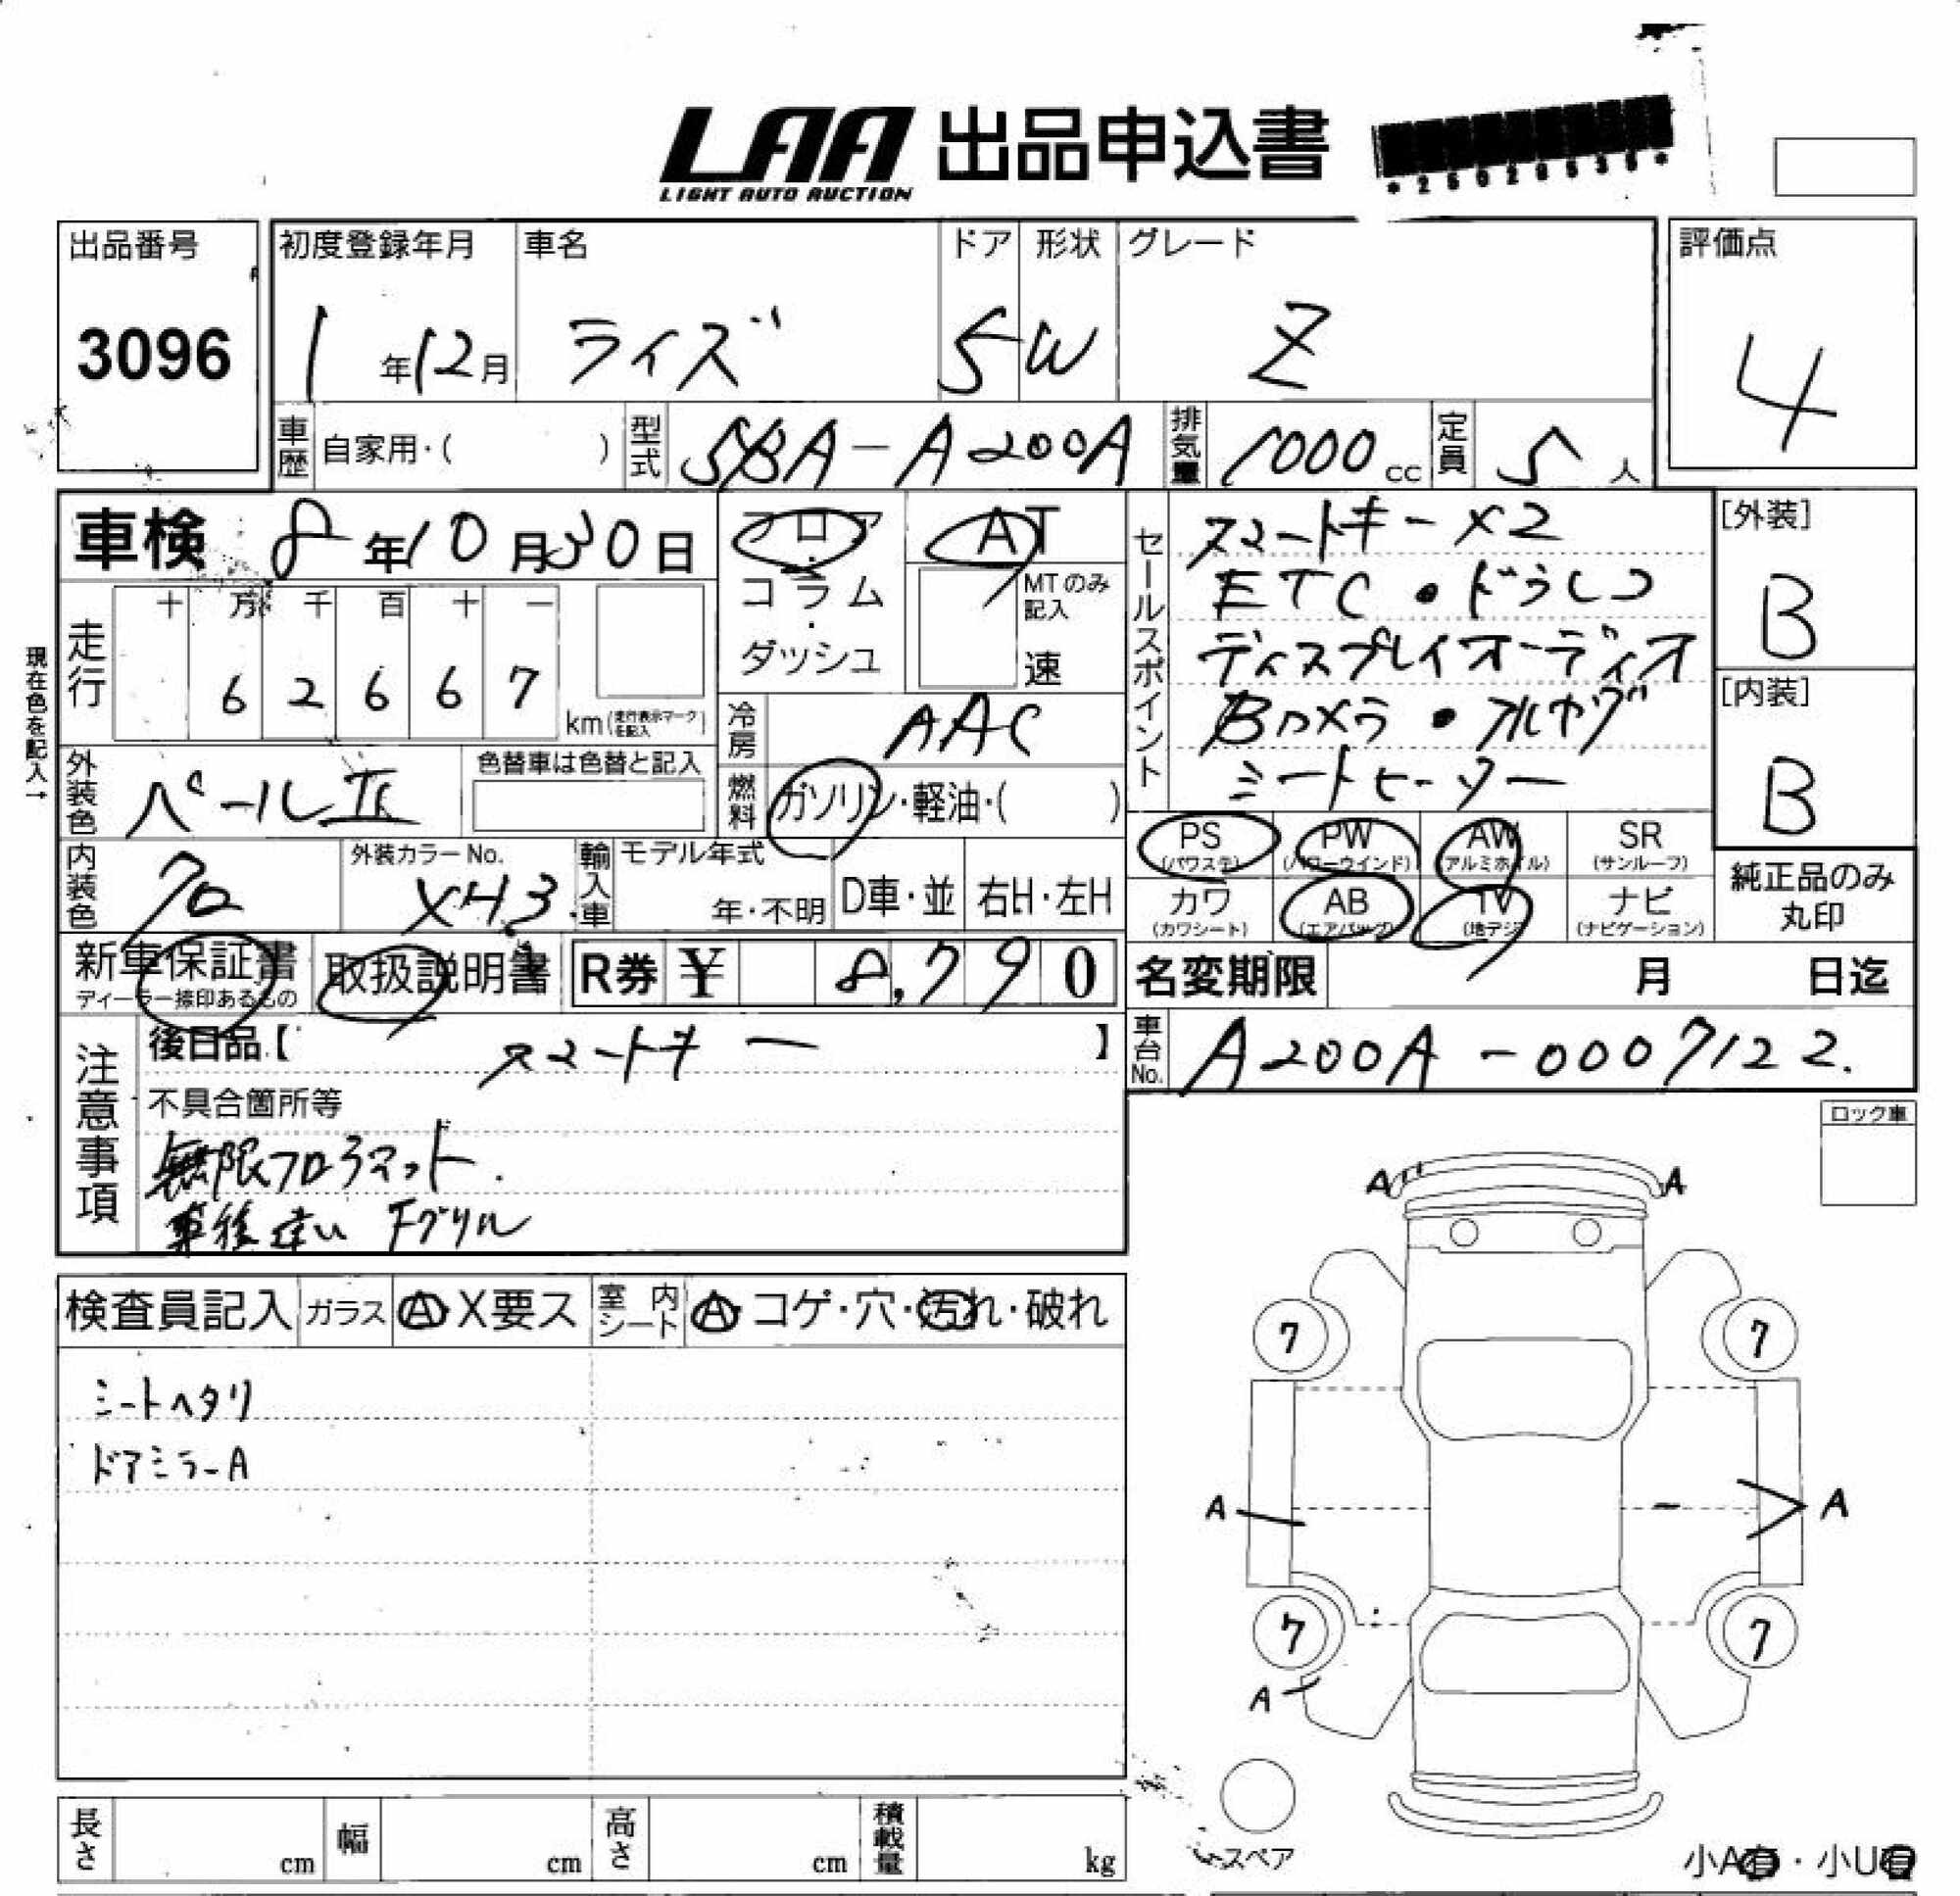 LAA 出品申込書
LIGHT AUTO AUCTION
出品番号
3096
初度登録年月
1年12月
車名
ライズ
ドア
5
形状
W
グレード
Z
評価点
4
車歴 自家用・( )
型式 5BA-A200A
排気量 1000cc
定員 5人
車検 8年10月30日
フロア・コラム・ダッシュ
AT
MTのみ記入
速
現在色を記入→
走行
十 万 千 百 十 一
6 2 6 6 7
km(走行表示マークを記入)
冷房 AAC
燃料 ガソリン・軽油・( )
外装色 パールII
色替車は色替と記入
内装色
外装カラーNo. X43
輸入車
モデル年式
年・不明
D車・並
右H・左H
セールスポイント
スマートキー×2
ETC・ドラレコ
ディスプレイオーディオ
Bカメラ・アルカグ
シートヒーター
[外装]
B
[内装]
B
PS (パワステ)
PW (パワーウインド)
AW (アルミホイル)
SR (サンルーフ)
カワ (カワシート)
AB (エアバッグ)
TV (地デジ)
ナビ (ナビゲーション)
純正品のみ丸印
新車保証書
ディーラー捺印あるもの
取扱説明書
R券 ¥ 8,790
名変期限 月 日迄
車台No. A200A-0007122.
注意事項
後日品【スマートキー】
不具合箇所等
無限フロアマット.
Fグリル
ロック車
検査員記入
ガラス A・X要ス
室内シート A・コゲ・穴・汚れ・破れ
シートヘタリ
ドアミラーA
A A
7 7
A A
7 7
A
スペア
小A有・小U有
長さ cm
幅 cm
高さ cm
積載量 kg